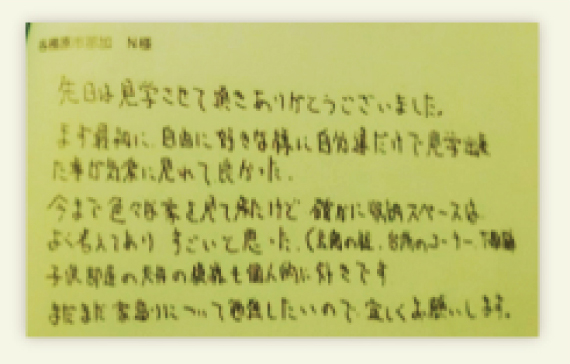 N様
先日は見学させて頂きありがとうございました。
まず最初に、自由に好きな様に自分達だけで見学出来
た事が気楽に見れて良かった。
今まで色々な家を見て来たけど 確かに収納スペースは
よく考えてあり すごいと思った。(玄関の 、台所のコーナー、
子供部屋の天井の模様も個人的に好きです
まだまだ家造りについて勉強したいので、宜しくお願いします。